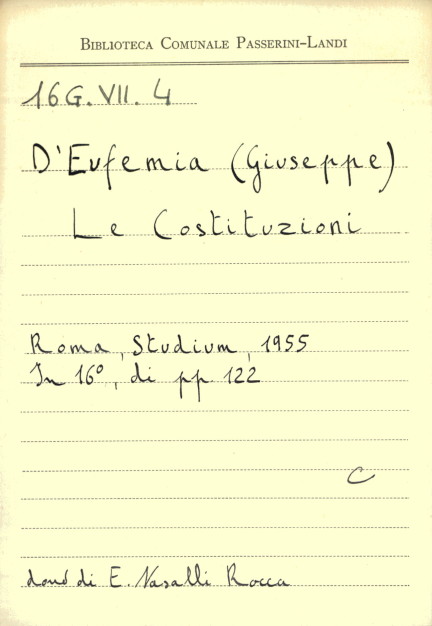 BIBLIOTECA COMUNALE PASSERINI-LANDI
16 G. VII. 4
D'Eufemia (Giuseppe)
Le Costituzioni
Roma, Studium, 1955
In 16º, di pp 122
C
dono di E. Nasalli Rocca